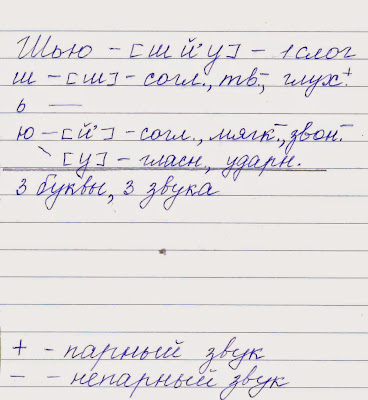 Шью – [ш й' у] – 1 слог
ш – [ш] – согл., тв.⁻, глух.⁺
ь —
ю – [й'] – согл., мягк.⁻, звон.⁻
\ [у] – гласн., ударн.
3 буквы, 3 звука
+ – парный звук
– – непарный звук